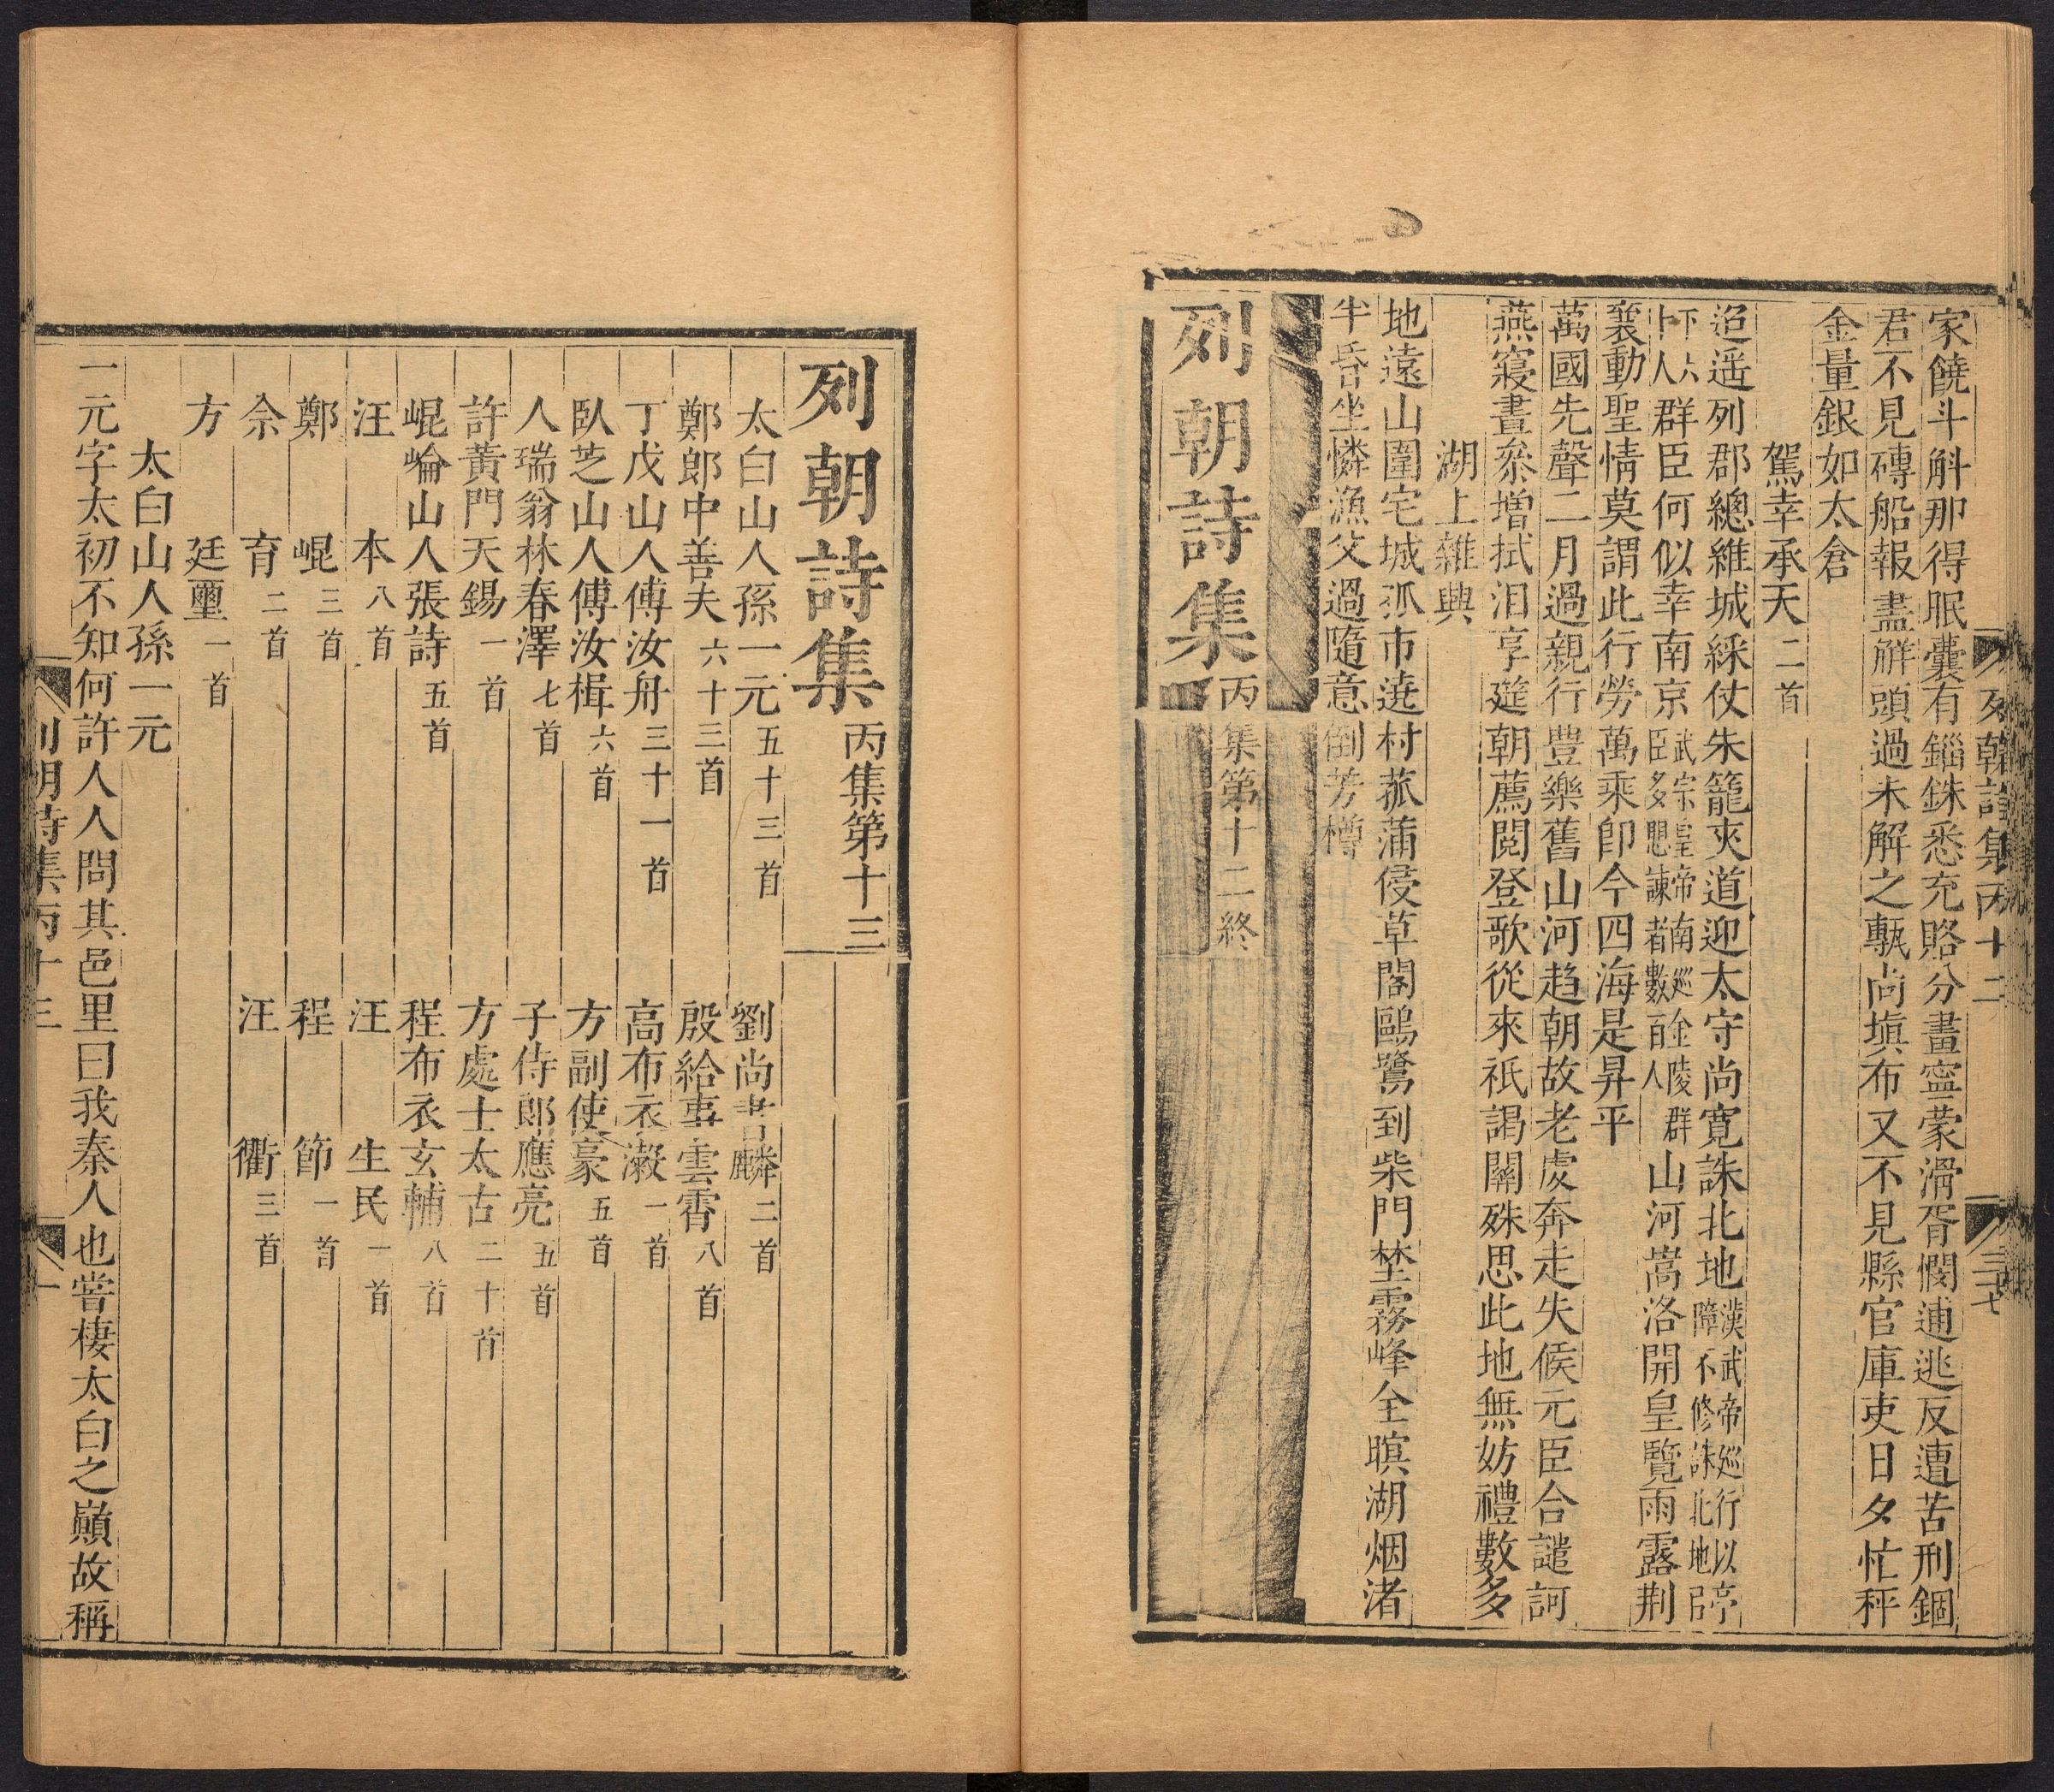 家饒斗斛那得眠囊有錙銖悉充賂分畫寧蒙滑胥憫逋逃反遭苦刑錮
君不見磚船報盡觧頭過未解之甎尚塡布又不見縣官庫吏日夕忙秤
金量銀如太倉
駕幸承天二首
迢遥列郡總維城綵仗朱籠夾道迎太守尚寛誅北地漢武帝巡行以亭障不修誅北地
下六人群臣何似幸南京武宗皇帝南巡金陵群臣多懇諫者數百人山河嵩洛開皇覽雨露荆
襄動聖情莫謂此行勞萬乘卽今四海是昇平
萬國先聲二月過親行豐樂舊山河趋朝故老處奔走失候元臣合譴訶
燕寢晝叅增拭泪享筵朝薦閱登歌從來祇謁關殊思此地無妨禮數多
湖上雜興
地遠山圍宅城孤市遶村菰蒲侵草閣鷗鷺到柴門埜霧峰全暝湖烟渚
半昏坐憐漁父過隨意倒芳樽
列朝詩集丙集第十二終
列朝詩集丙十二
三十七
列朝詩集丙集第十三
太白山人孫一元五十三首 劉尚書麟二首
鄭郎中善夫六十三首 殷給事雲霄八首
丁戊山人傅汝舟三十一首 高布衣瀫一首
臥芝山人傅汝楫六首 方副使豪五首
人瑞翁林春澤七首 子侍郎應亮五首
許黃門天錫一首 方處士太古二十首
崐崘山人張詩五首 程布衣玄輔八首
汪本八首 汪生民一首
鄭崐三首 程節一首
佘育二首 汪衢三首
方廷璽一首
太白山人孫一元
一元字太初不知何許人人問其邑里曰我秦人也甞棲太白之巔故稱
列朝詩集丙十三
一